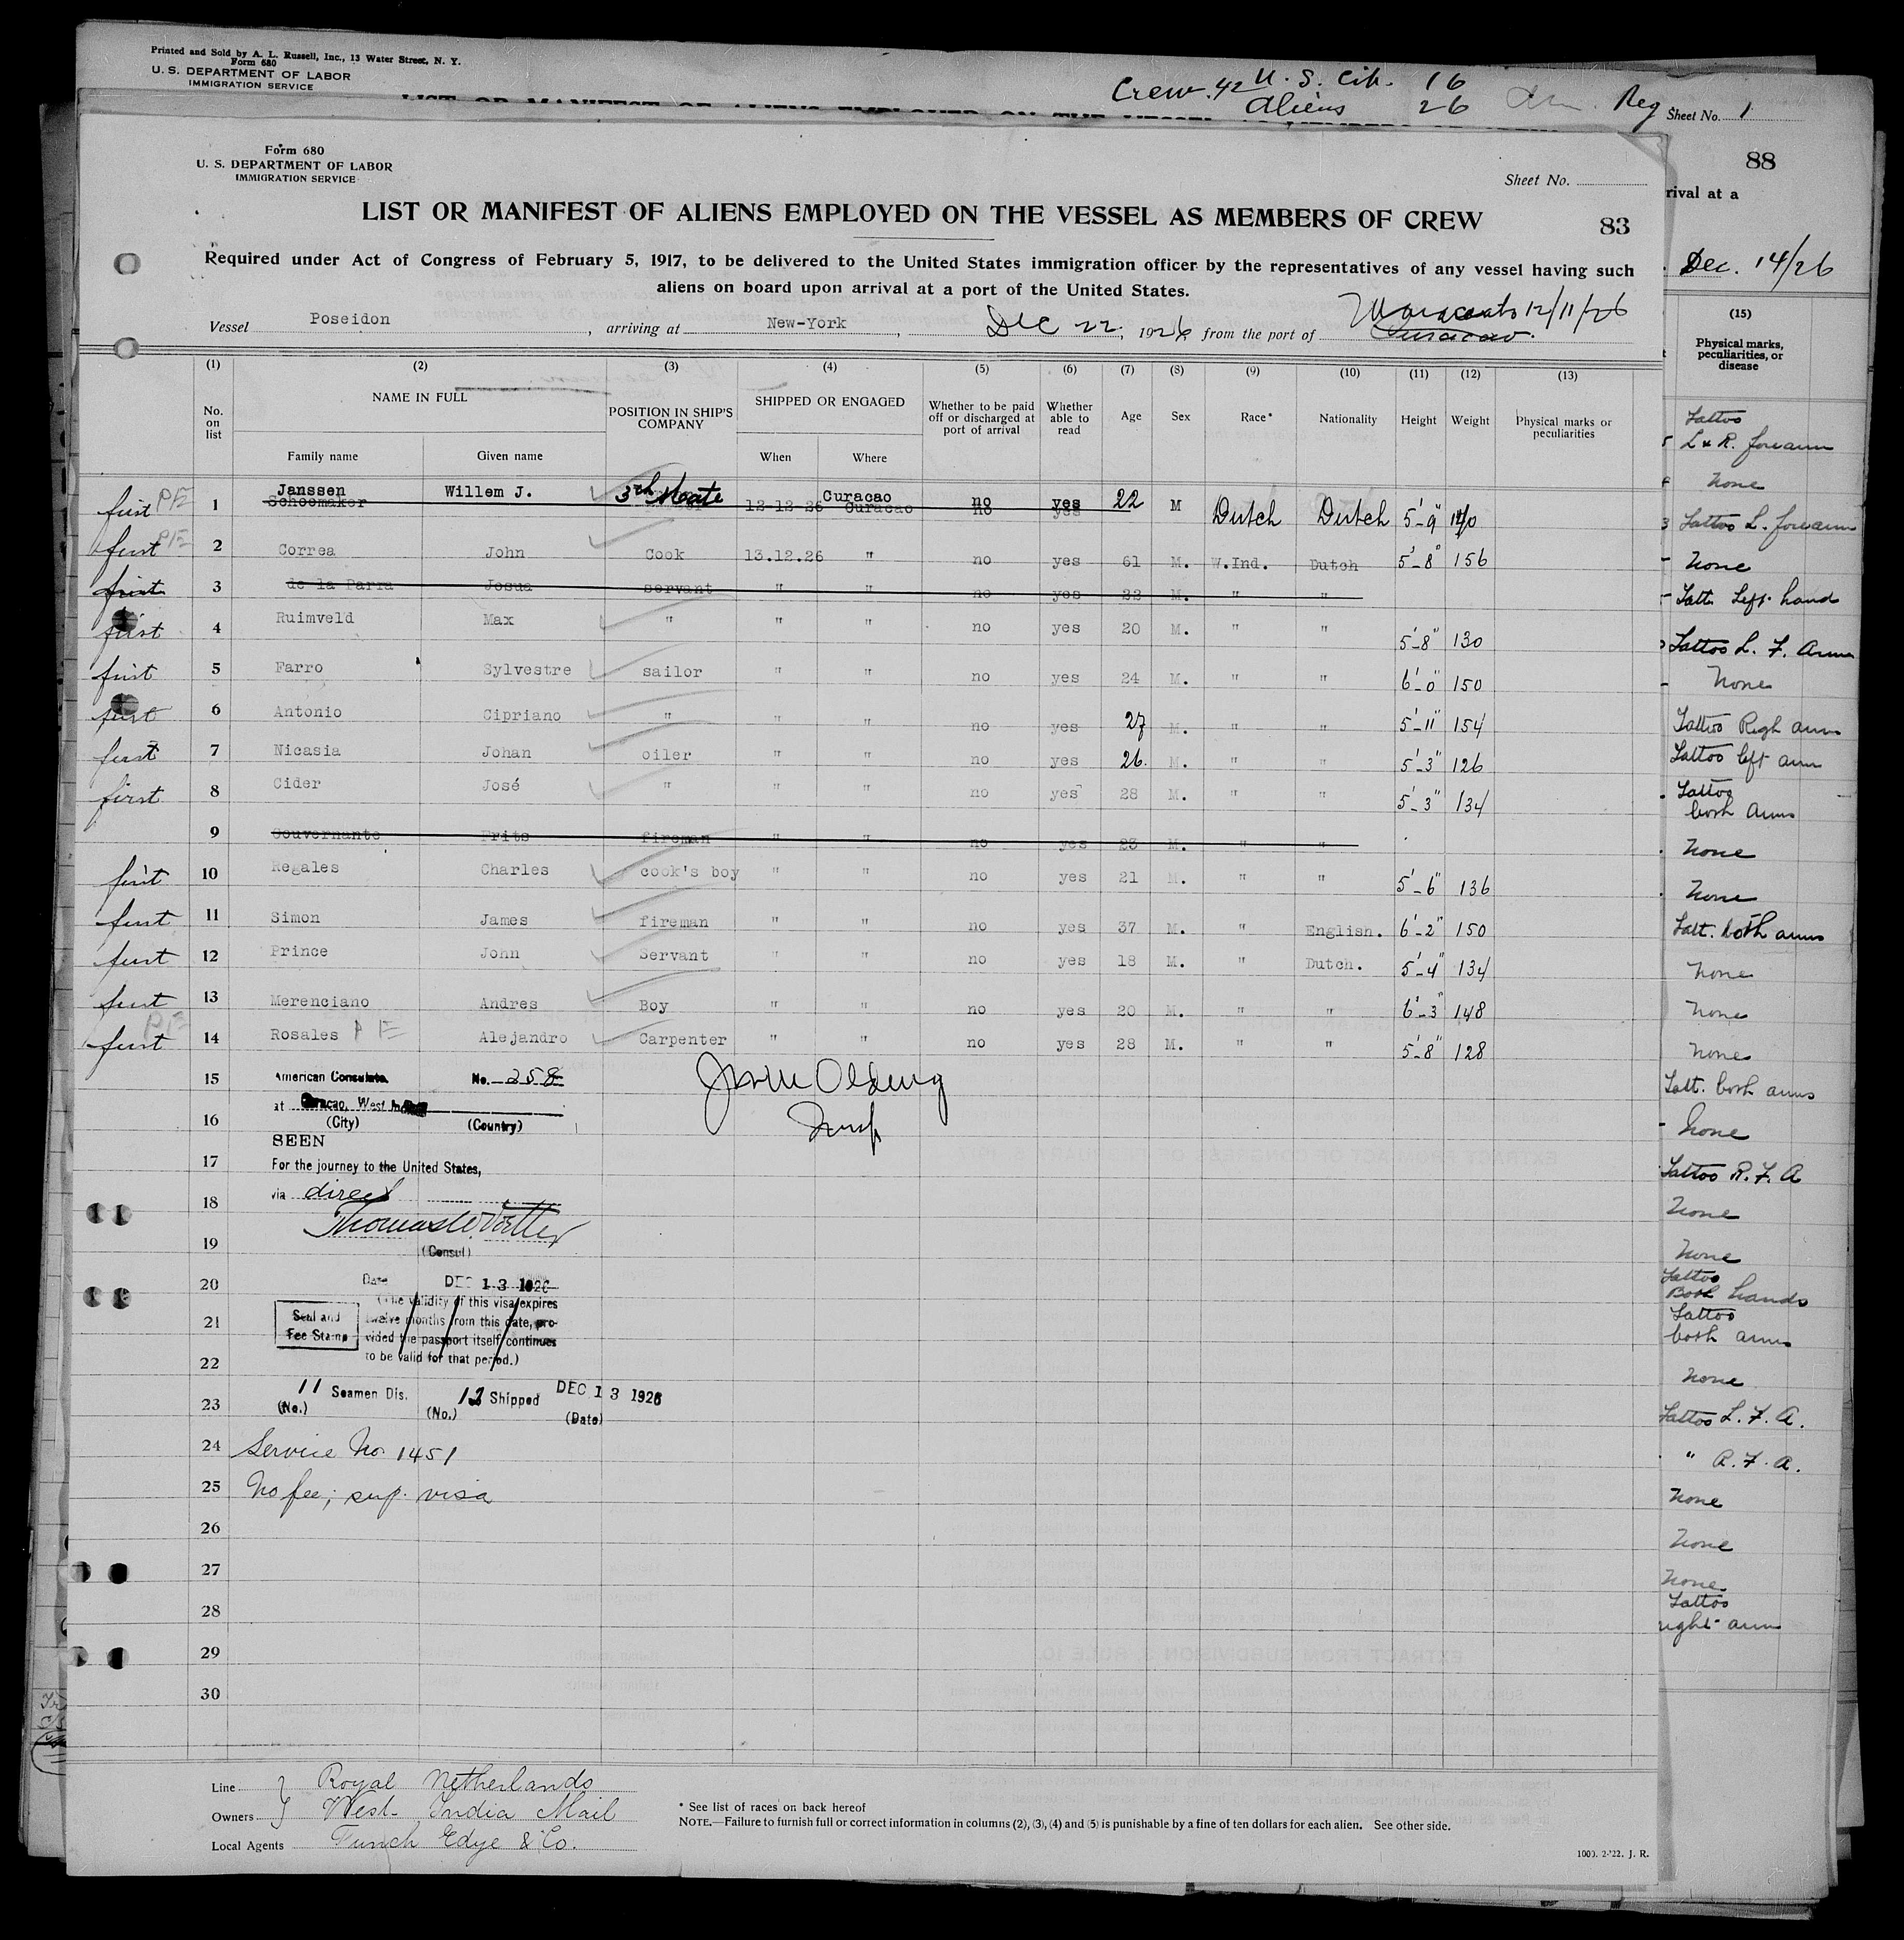 Printed and Sold by A. L. Russell, Inc., 13 Water Street, N. Y.
Form 680
U. S. DEPARTMENT OF LABOR
IMMIGRATION SERVICE
Crew. 42 U. S. Cit. 16
Aliens 26
Reg
Sheet No. 1
88
rival at a
Dec. 14/26
(15)
Physical marks, peculiarities, or disease
Form 680
U. S. DEPARTMENT OF LABOR
IMMIGRATION SERVICE
Sheet No.
LIST OR MANIFEST OF ALIENS EMPLOYED ON THE VESSEL AS MEMBERS OF CREW
83
Required under Act of Congress of February 5, 1917, to be delivered to the United States immigration officer by the representatives of any vessel having such
aliens on board upon arrival at a port of the United States.
Maracaibo 12/11/26
Vessel Poseidon, arriving at New-York, Dec 22, 1926 from the port of Curacao.
(1) (2) (3) (4) (5) (6) (7) (8) (9) (10) (11) (12) (13)
No. on list
NAME IN FULL
Family name Given name
POSITION IN SHIP'S COMPANY
SHIPPED OR ENGAGED
When Where
Whether to be paid off or discharged at port of arrival
Whether able to read
Age Sex Race* Nationality Height Weight
Physical marks or peculiarities
Janssen Willem J. 3rd Mate Curacao no yes 22 M Dutch Dutch 5'-9" 140
first PE 1 Schoemaker 12-12-26 Curacao no yes
first PE 2 Correa John Cook 13.12.26 " no yes 61 M. W.Ind. Dutch 5'-8" 156
first 3 de la Parra Josua servant " " no yes 22 M. " "
first 4 Ruimveld Max " " " no yes 20 M. " " 5'-8" 130
first 5 Farro Sylvestre sailor " " no yes 24 M. " " 6'-0" 150
first 6 Antonio Cipriano " " " no yes 27 M. " " 5'-11" 154
first 7 Nicasia Johan oiler " " no yes 26. M. " " 5'-3" 126
first 8 Cider José " " " no yes 28 M. " " 5'-3" 134
9 Gouvernante Frits fireman " " no yes 23 M. " "
first 10 Regales Charles cook's boy " " no yes 21 M. " " 5'-6" 136
first 11 Simon James fireman " " no yes 37 M. " English. 6'-2" 150
first 12 Prince John Servant " " no yes 18 M. " Dutch. 5'-4" 134
first 13 Merenciano Andres Boy " " no yes 20 M. " " 6'-3" 148
first PE 14 Rosales PE Alejandro Carpenter " " no yes 28 M. " " 5'-8" 128
15 American Consulate No. 258
at Curacao, West Indies
16 (City) (Country)
SEEN
17 For the journey to the United States,
via direct
18
19 (Consul)
20 Date DEC 13 1926
(The validity of this visa expires
21 twelve months from this date, pro-
vided the passport itself continues
22 to be valid for that period.)
Seal and
Fee Stamp
11 Seamen Dis. 12 Shipped DEC 13 1926
23 (No.) (No.) (Date)
24 Service No. 1451
25 No fee; sup. visa
26
27
28
29
30
Tattoo
L & R. forearm
None
Tattoo L. forearm
None
Tatt. Left hand
Tattoo L. F. Arm
None
Tattoo Righ arm
Tattoo left arm
Tattoo
both Arms
None
None
Tatt. both arms
None
None
None
Tatt. both arms
None
Tattoo R. F. A
None
None
Tattoo
Both hands
Tattoo
both arms
None
Tattoo L. F. A.
" R. F. A.
None
None
None
Tattoo
right arm
Line Royal Netherlands
Owners West-India Mail
Local Agents Funch Edye & Co.
* See list of races on back hereof
NOTE.—Failure to furnish full or correct information in columns (2), (3), (4) and (5) is punishable by a fine of ten dollars for each alien. See other side.
1000. 2-'22. J. R.